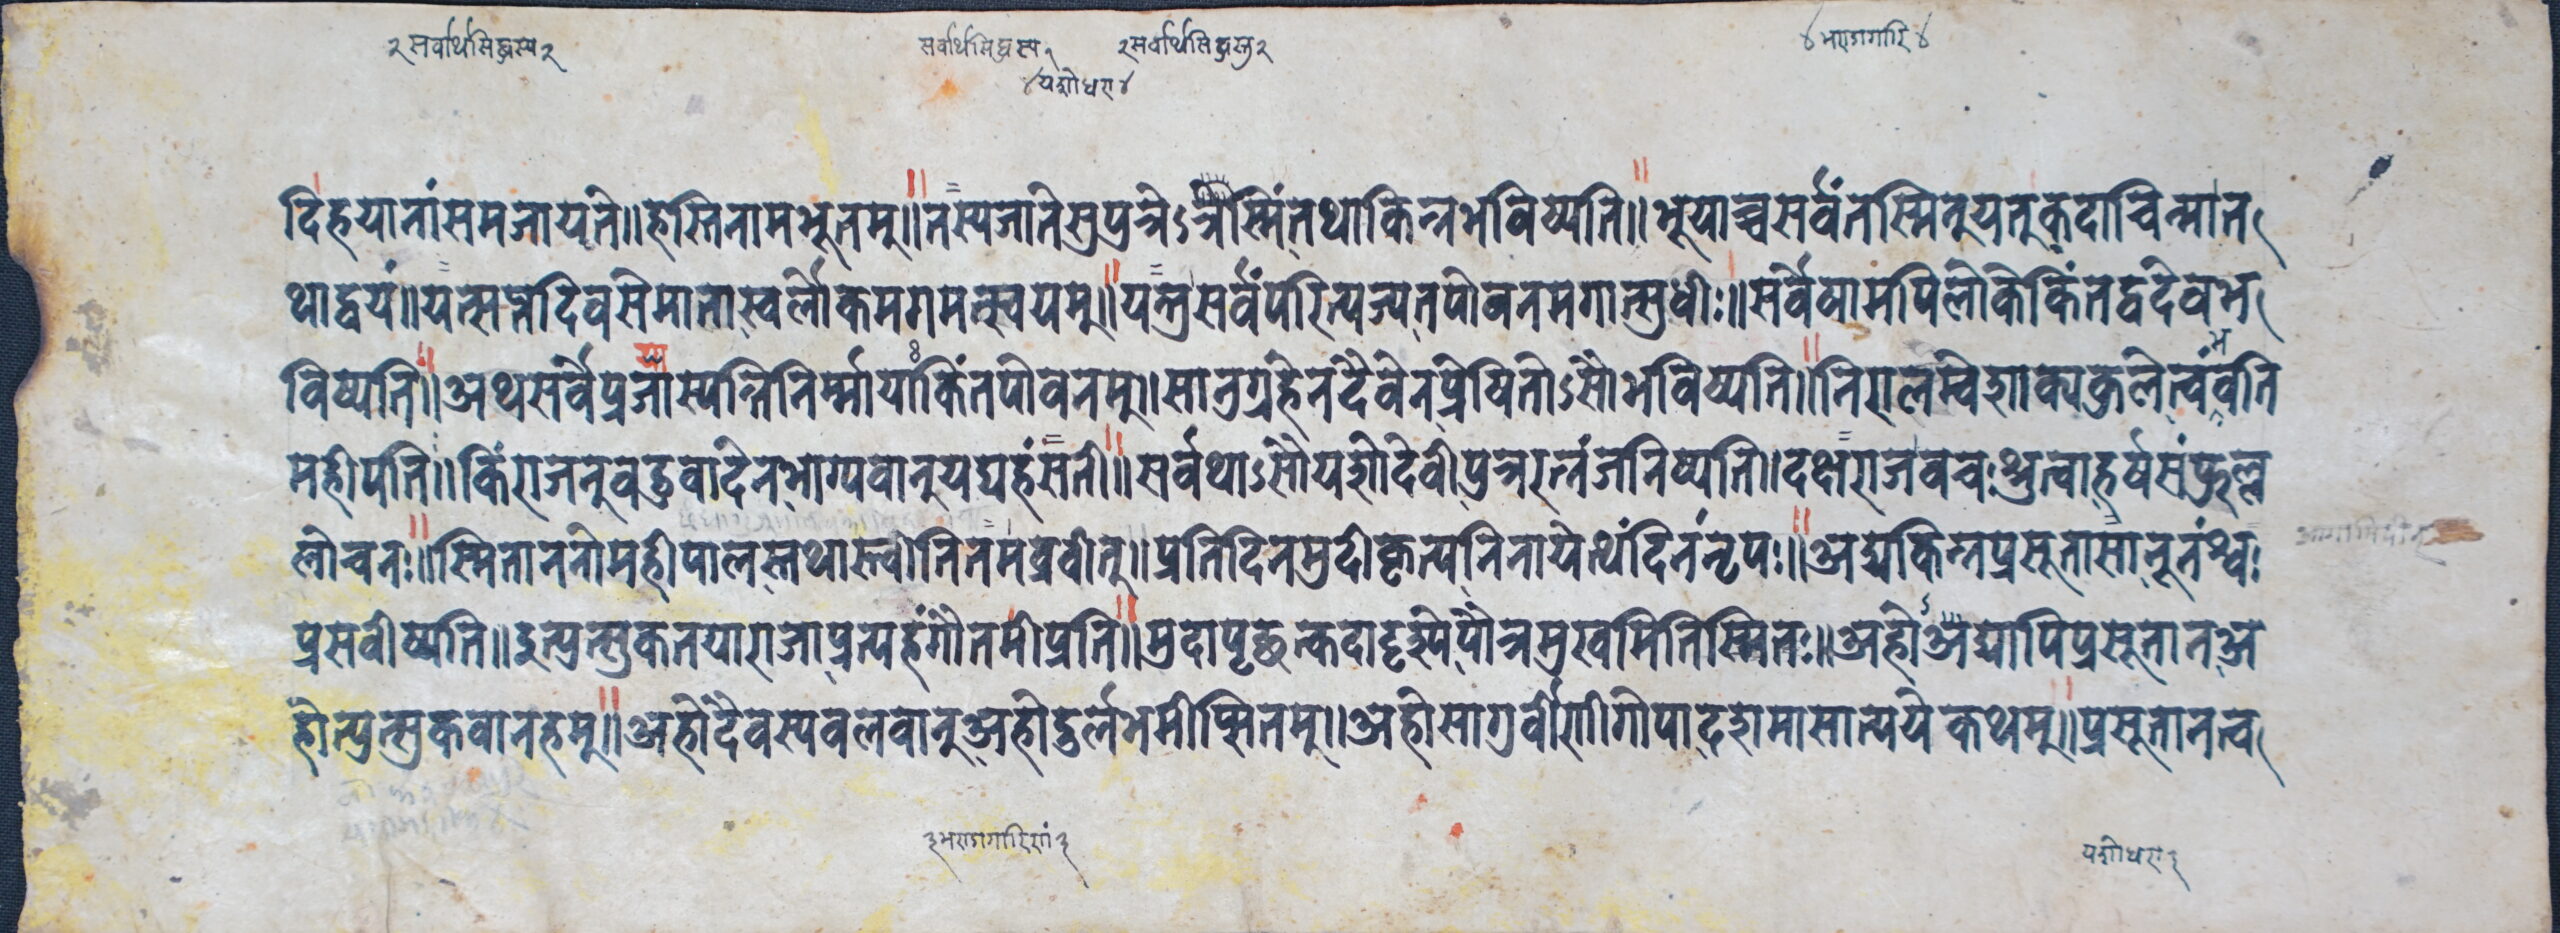 २ सर्वार्थसिद्धस्य २ सर्वार्थसिद्धस्य १ २ सर्वार्थसिद्धस्तु २ ४ भाण्डागारि ४
४ यशोधरा ४
दिहयानांसमजायते॥हस्तिनामभूतम्॥तस्यजातेसुपुत्रेऽत्रस्मिंतथाकिन्नभविष्यति॥भूयाच्चसर्वंतस्मिन्यत्कदाचिन्मात
थाद्वयं॥यत्सप्तदिवसेमातास्वर्लोकमगमत्स्वयम्॥यत्तुसर्वंपरित्यज्यतपोवनमगात्सुधीः॥सर्वेषामपिलोकेकिंतद्वदेवभ
विष्यति॥अथसर्वैप्रजास्यन्तिनिर्म्मायांकिंतपोवनम्॥सानुग्रहेनदैवेनप्रेषितोऽसौभविष्यति॥निरालम्वेशाक्यकुलेत्वंवति
महीपति॥किंराजन्वहुवादेनभाग्यवान्यद्यहंसती॥सर्वथाऽसौयशोदेवीपुत्ररत्नंजनिष्यति॥दक्षराजवचःश्रुत्वाहर्षसंफुल्ल
लोचनः॥स्मिताननोमहीपालस्तथास्त्वीतितमब्रवीत्॥प्रतिदिनमुदीकृत्यनिनायेत्थंदिनंनृपः॥अद्यकिन्नप्रसूतासानूनंश्वः
प्रसवीष्यति॥इत्युत्सुकतयाराजाप्रत्यहंगौतमीप्रति॥मुदापृछत्कदादृश्येपौत्रमुखमितिस्मितः॥अहोअद्यापिप्रसूतानअ
होत्युत्सुकवानहम्॥अहोदैवस्यवलवान्अहोदुर्लभमीप्सितम्॥अहोसागुर्वीणीगोपादशमासात्ययेकथम्॥प्रसूतानत्व
यशोधरा १